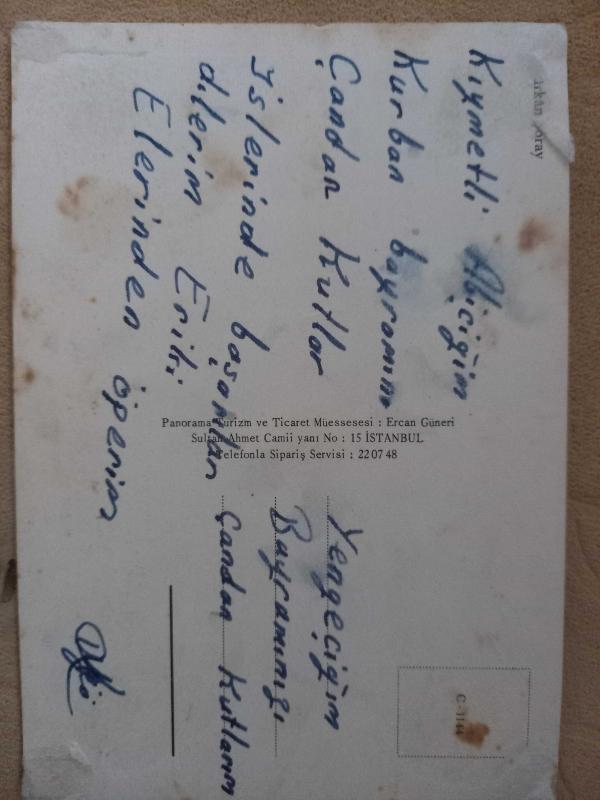 Kıymetli Abiciğim
Kurban bayramını
Çandan Kutlar
İslerinde başarılar
dilerim Eriki
Elerinden öperim
Yengeciğim
Bayramınızı
Çandan Kutlarım
Panorama Turizm ve Ticaret Müessesesi : Ercan Güneri
Sultan Ahmet Camii yanı No : 15 İSTANBUL
Telefonla Sipariş Servisi : 22 07 48
C-1144